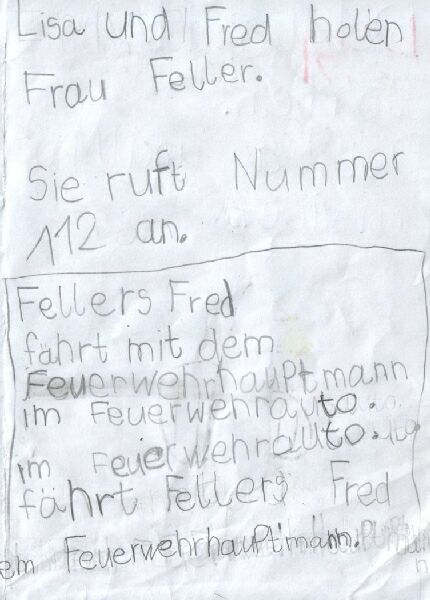 Lisa und Fred holen
Frau Feller.
Sie ruft Nummer
112 an.
Fellers Fred
fährt mit dem
Feuerwehrhauptmann
im Feuerwehrauto.
im Feuerwehrauto.
fährt Fellers Fred
em Feuerwehrhauptmann.